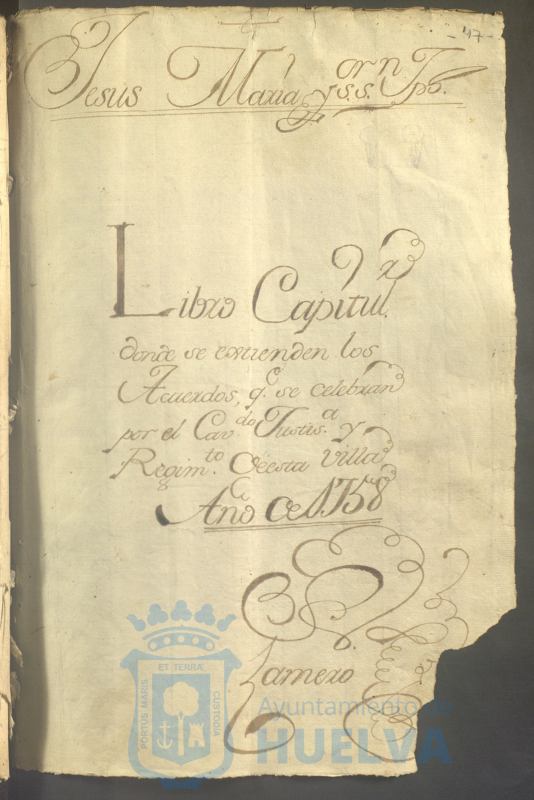 - 47 -
Jesus Maria y s.ᵒʳ s.ⁿ Jph.
Libro Capitul.ʳ
donde se extienden los
Acuerdos, q.ᵉ se celebran
por el Cav.ᵈᵒ Justis.ᵃ y
Regim.ᵗᵒ de esta Villa
Año de 1758
Lamero
ET TERRÆ
PORTUS MARIS
CUSTODIA
Ayuntamiento de
HUELVA